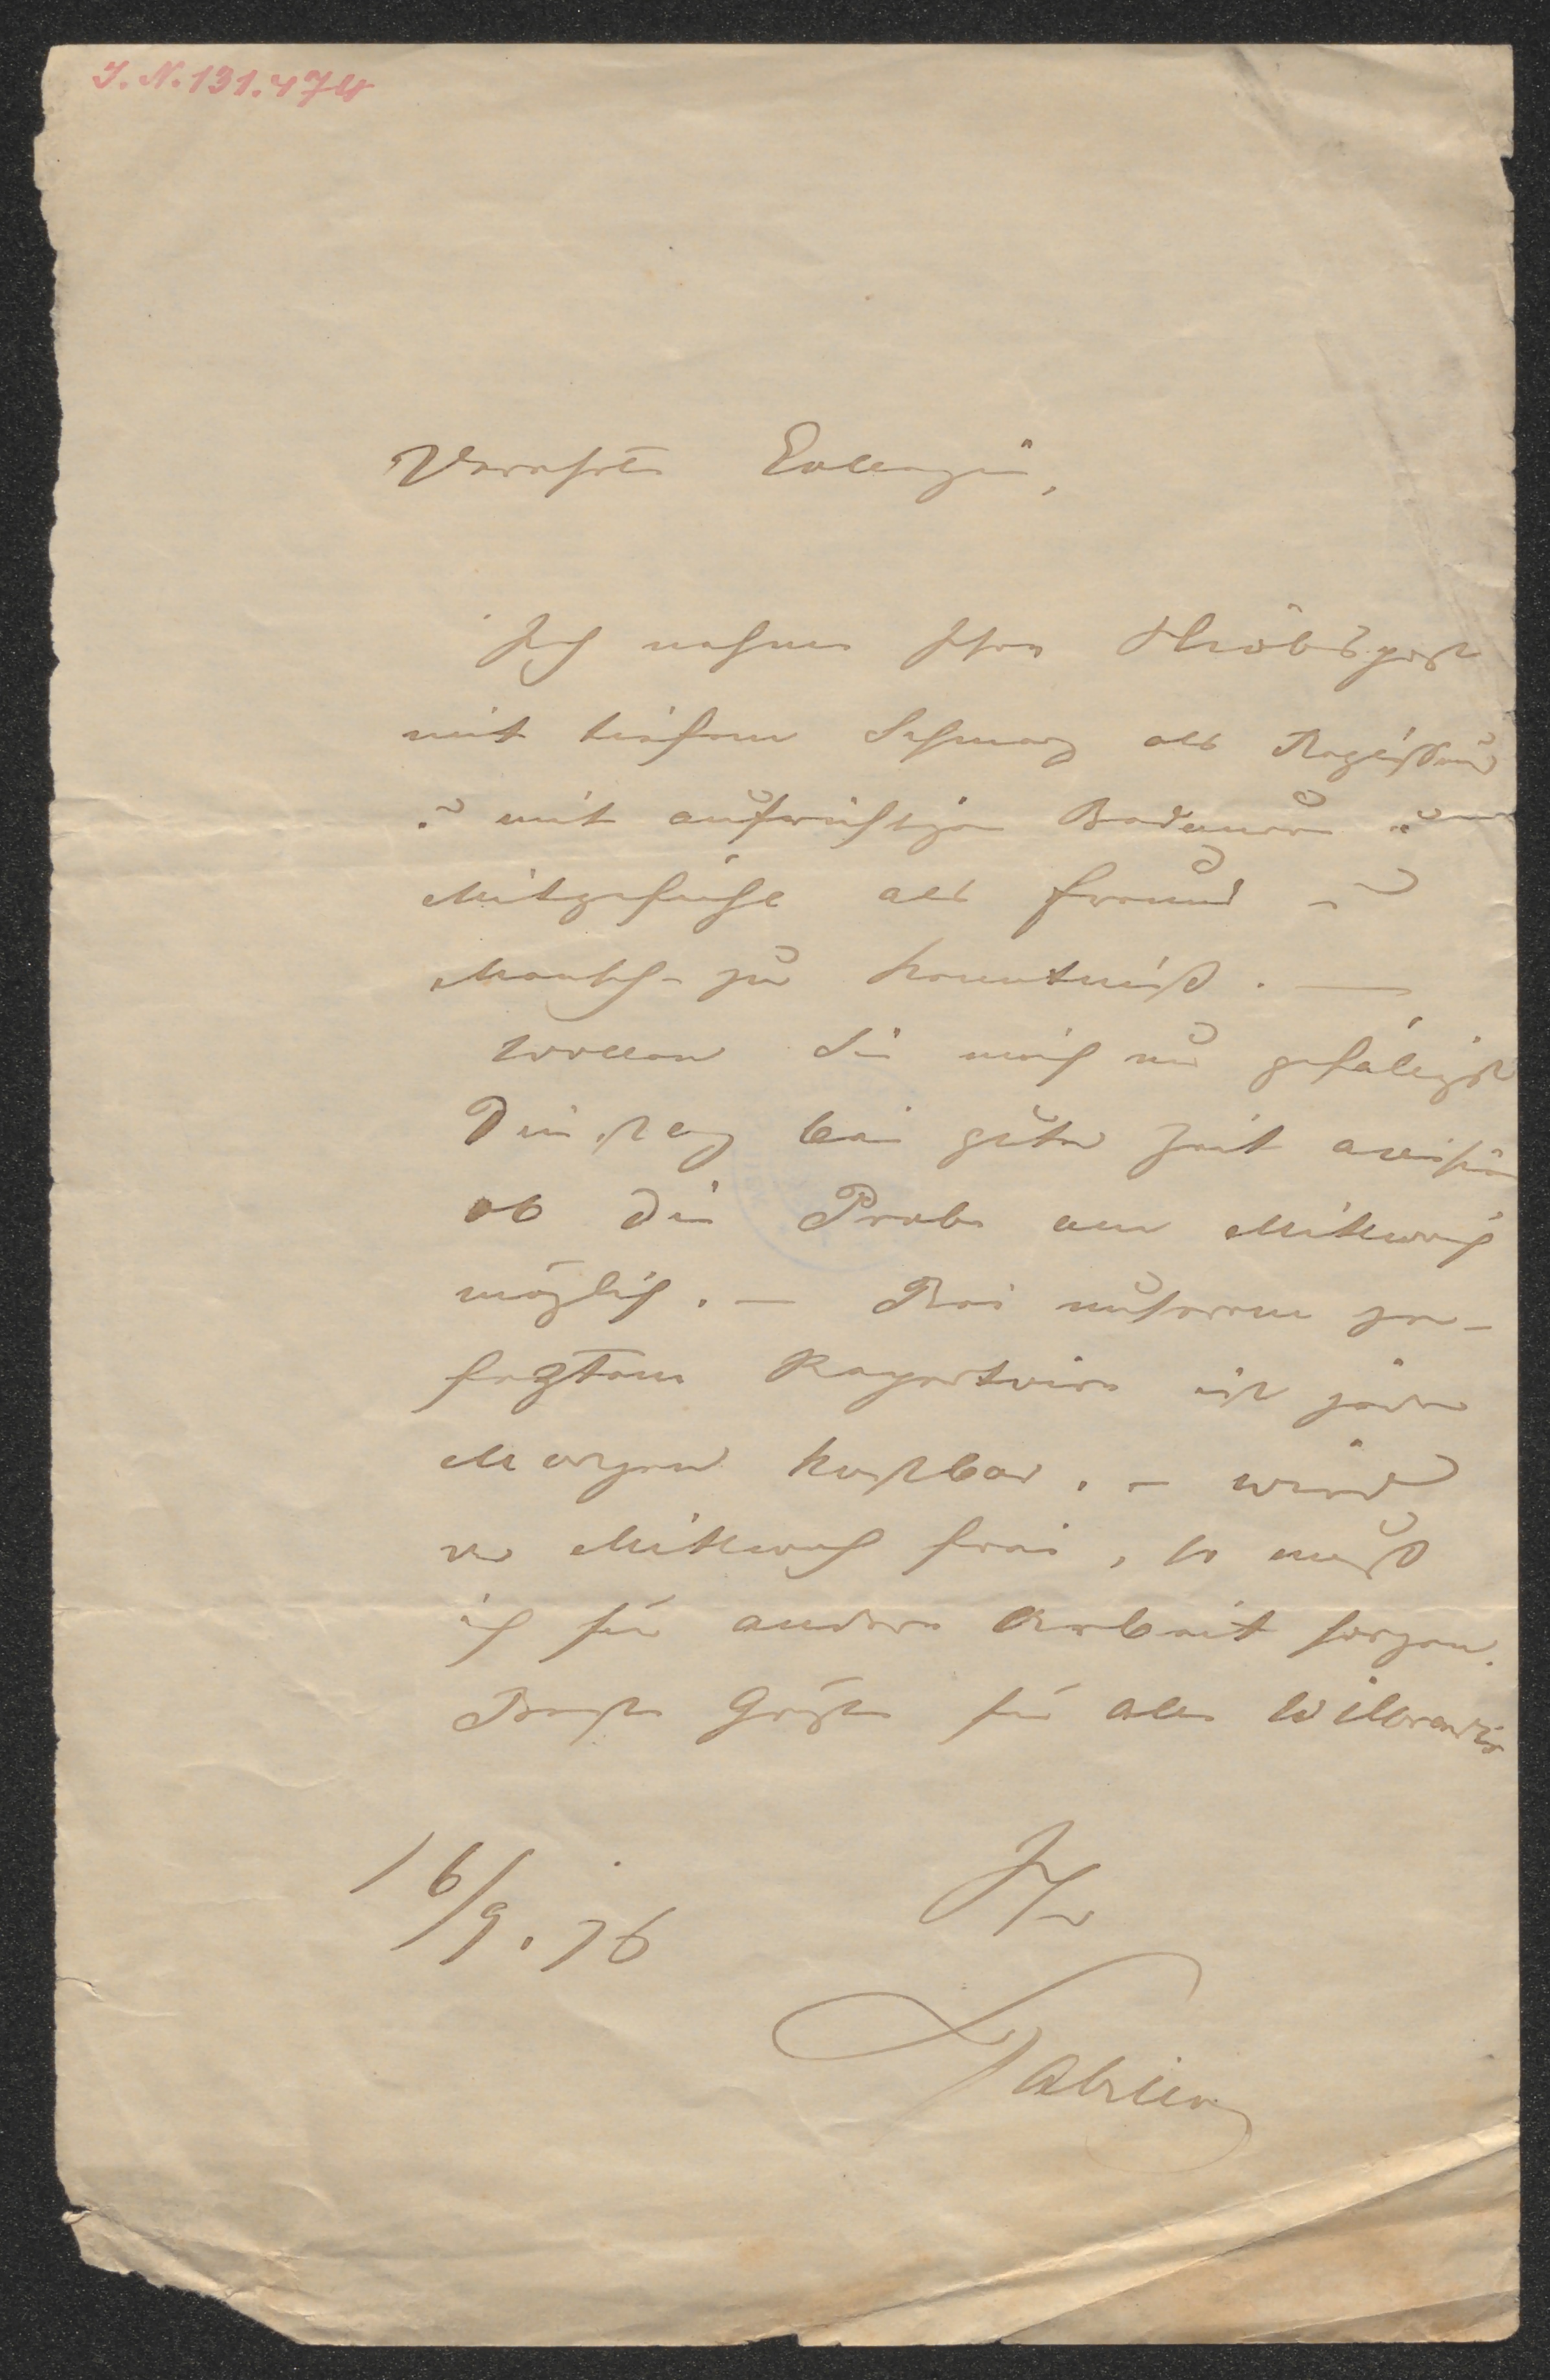 J. N. 131.474
Verehrte Collegin,
Ich nehme Ihre Hiobspost
mit tiefem Schmerz als Regisseur
u mit aufrichtigem Bedauern u
Mitgefühl als Freund u
Mensch zur Kenntniß. —
Wollen Sie mich nur gefälligst
Dinstag bei guter Zeit avisiren
ob die Probe am Mittwoch
möglich. — Bei unserem ge-
hetztem Repertoire ist jeder
Morgen kostbar. — Wird
er Mittwoch frei, so muß
ich für andere Arbeit sorgen.
Beste Grüße für alle Wilbrandts
Ihr
16/9. 76
Gabillon